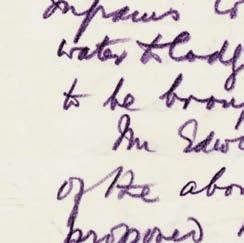 water to Lodg
to be broug
Mr Edw
of the abo
proposed